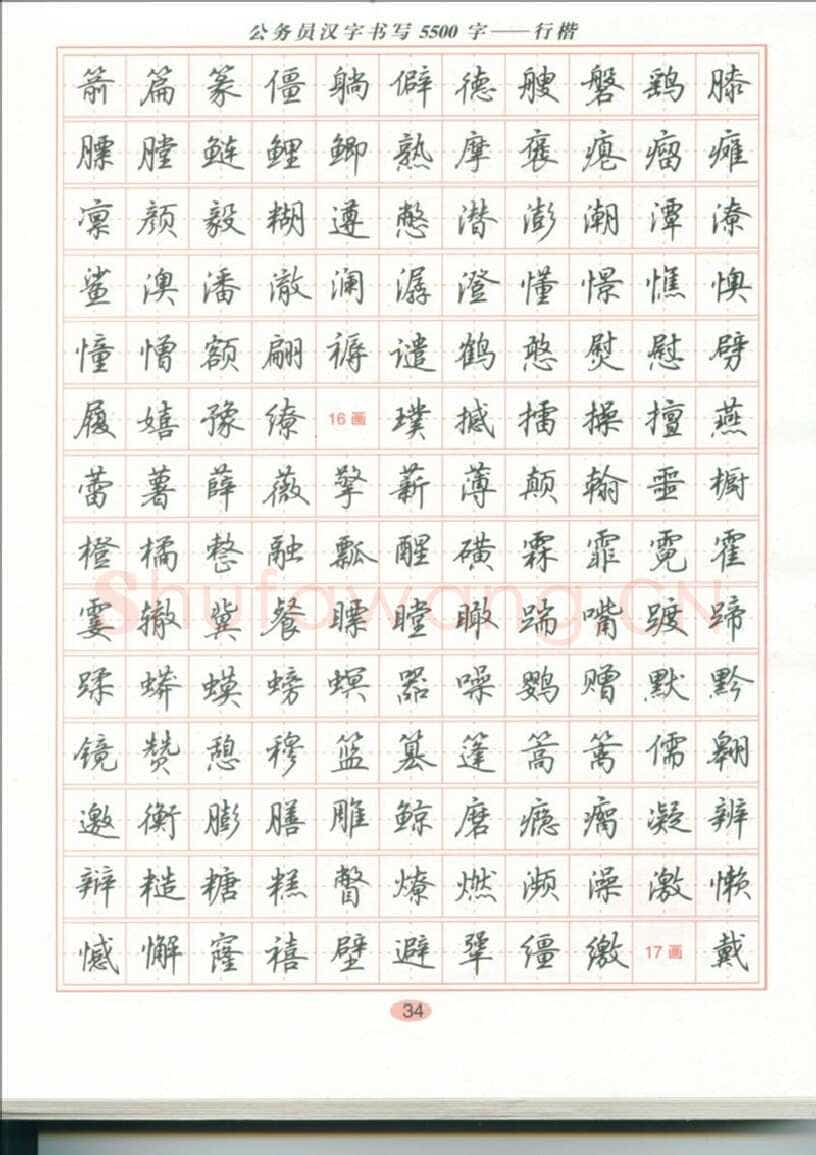 公务员汉字书写5500字——行楷
箭 篇 篆 僵 躺 僻 德 艘 磐 鹞 膝
膘 膛 鲢 鲤 鲫 熟 摩 褒 瘪 瘤 瘫
凛 颜 毅 糊 遵 憋 潜 澎 潮 潭 潦
鲨 澳 潘 澈 澜 潺 澄 懂 憬 憔 懊
憧 憎 额 翩 褥 谴 鹤 憨 熨 慰 劈
履 嬉 豫 缭 16画 璞 撼 擂 操 擅 燕
蕾 薯 薛 薇 擎 薪 薄 颠 翰 噩 橱
橙 橘 整 融 瓢 醒 磺 霖 霏 霓 霍
霎 辙 冀 餐 瞟 瞠 瞰 踹 嘴 踱 蹄
蹂 蟒 蟆 螃 螟 器 噪 鹦 赠 默 黔
镜 赞 憩 穆 篮 篡 篷 篙 篱 儒 翱
邀 衡 膨 膳 雕 鲸 磨 瘾 瘸 凝 辨
辩 糙 糖 糕 瞥 燎 燃 濒 澡 激 懒
憾 懈 窿 禧 壁 避 犟 缰 缴 17画 戴
34
Shufawang.CN